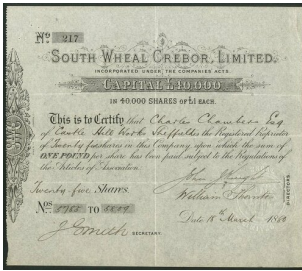 No 217
SOUTH WHEAL CREBOR, LIMITED.
INCORPORATED UNDER THE COMPANIES ACTS.
CAPITAL £10,000
IN 40,000 SHARES OF £1 EACH.
This is to Certify that Charles Chambers Esq
of Castle Hill Works Sheffield is the Registered Proprietor
of Twenty five shares in this Company upon which the sum of
ONE POUND per share has been paid subject to the Regulations of
the Articles of Association.
Twenty-five Shares.
William Thornton
DIRECTORS
Nos TO
Date 18th March
J Smith SECRETARY